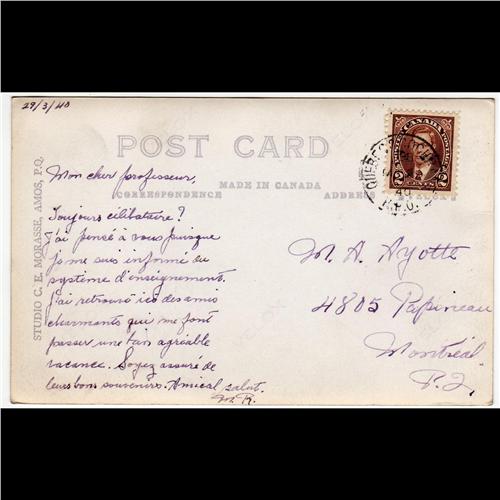 29/3/40
POST CARD
CORRESPONDENCE MADE IN CANADA ADDRESS
STUDIO C. E. MORASSE, AMOS, P.Q.
Mon cher professeur,
Toujours célibataire?
J'ai pensé à vous puisque
je me suis informé du
système d'enseignement.
J'ai retrouvé ici des amis
charmants qui me font
passer une bien agréable
vacance. Soyez assuré de
leurs bons souvenirs. Amical salut.
M.R.
M. A. Ayotte
4805 Papineau
Montréal
P.Q.
CANADA
2 CENTS 2
QUEBEC
40
R.P.O.